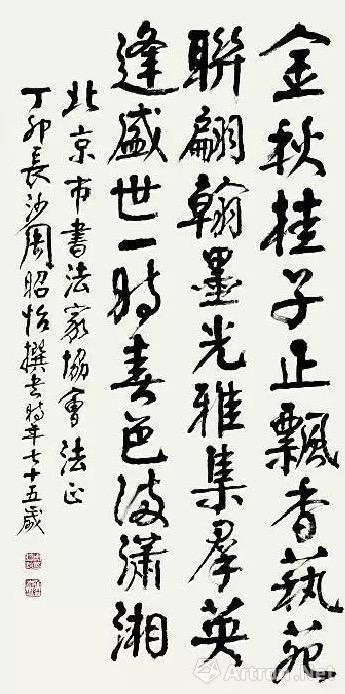 金秋桂子正飄香藝苑
聯翩翰墨光雅集群英
逢盛世一時春色滿瀟湘
北京市書法家協會法正
丁卯長沙周昭怡撰書時年七十五歲
Artron.Net